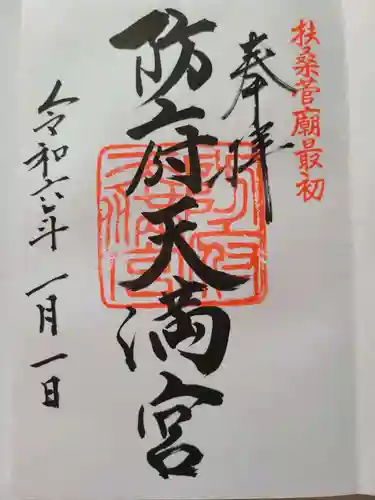 扶桑菅廟最初
奉拝
防府天満宮
令和六年一月一日